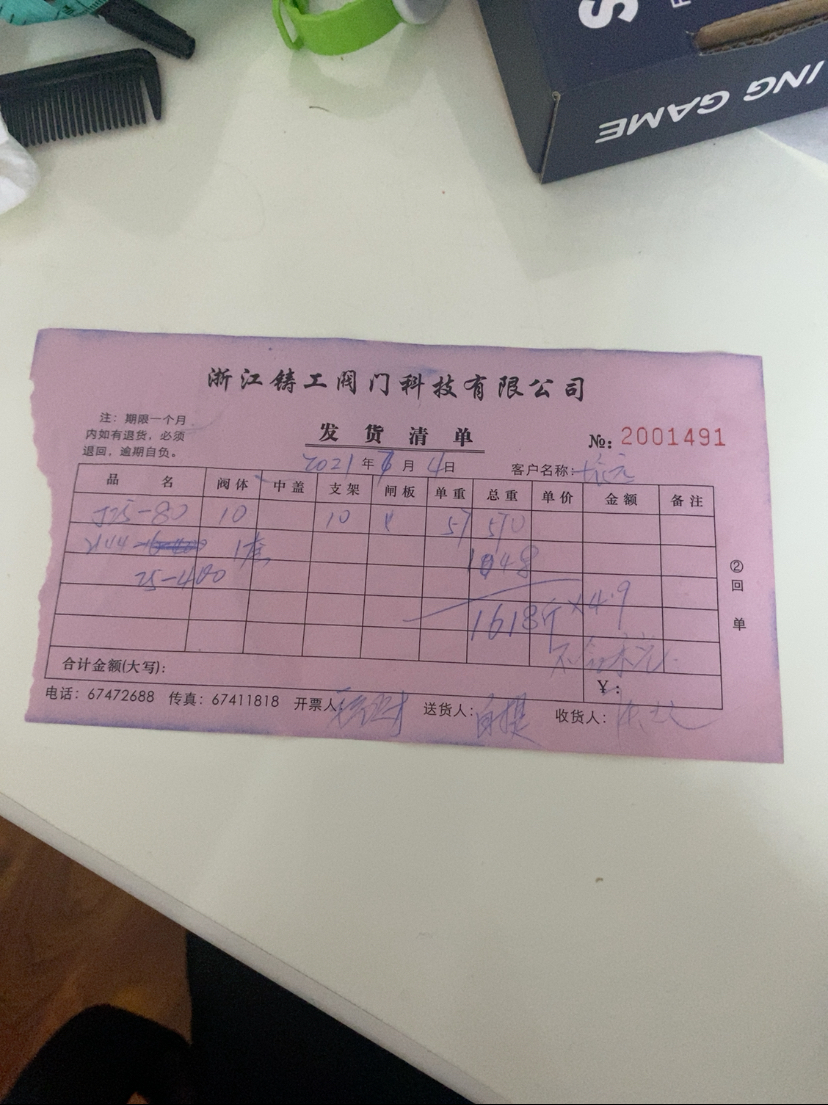 ING GAME
S
浙江铸工阀门科技有限公司
注：期限一个月
内如有退货，必须
退回，逾期自负。
发货清单
№: 2001491
2021年 月4日 客户名称：
品名 阀体 中盖 支架 闸板 单重 总重 单价 金额 备注
J25-80 10 10 57 570
1套 1048
25-400
1618斤×4.9
合计金额(大写)： ￥：
②回单
电话：67472688 传真：67411818 开票人 送货人：自提 收货人：